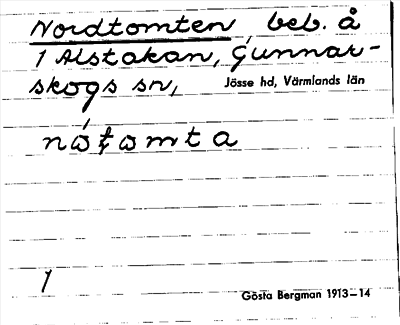 Nordtomten, beb. å
1 Alstakan, Gunnar-
skogs sn, Jösse hd, Värmlands län
nóťomta
1
Gösta Bergman 1913–14